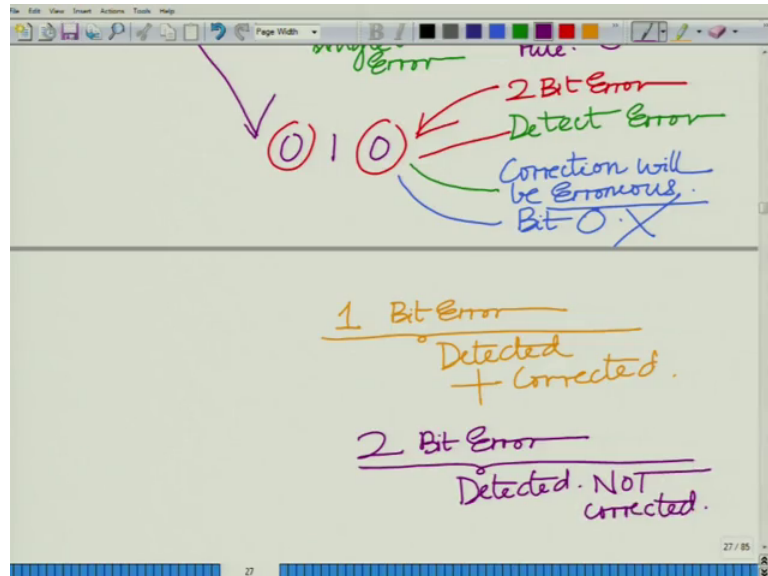 File Edit View Insert Actions Tools Help
Page Width
B I
Single
Error
rule.
2 Bit Error
0 1 0
Detect Error
Correction will
be Erroneous.
Bit 0. X
1 Bit Error
Detected
+ Corrected.
2 Bit Error
Detected. NOT
corrected.
27 / 85
27